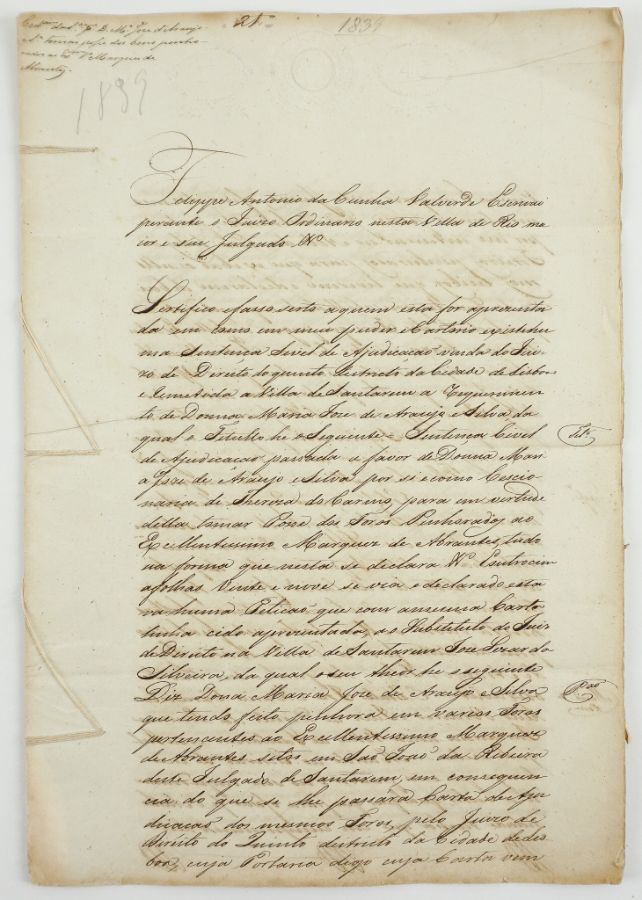 21
1839
1839
Felippe Antonio da Cunha Valverde Escrivaõ
perante o Juizo Ordinario nesta Villa de Rio ma
ior e seu Julgado Vª
Certifico e fasso serto a quem esta for aprezenta
da em como em meu puder e Cartorio existe hu
ma Sentença Sivel de Ajudicação vinda do Jui
zo de Direito do quinto Districto da Cidade de Lisboa
e Remetida a Villa de Santarem a Requerimen
to de Donna Maria Joze de Araujo e Silva da
qual o Titullo he o Seguinte = Sentença Civel
de Ajudicação passada a favor de Donna Mari
a Joze de Araujo e Silva por si e como Cescio
naria de Thereza do Carmo, para em virtude
della tomar Posse dos Foros Pinhorados ao
Excellentissimo Marquez de Abrantes, tudo
na forma que nesta se declara Vª Eoutrocim
afolhas Vinte e nove se via e declarado esta
va huma Peticaõ que com amesma Carta
tinha cido aprezentada ao Substituto do Juiz
de Direito na Villa de Santarem Joze
Silveira, da qual o seu theor he o seguinte
Diz Dona Maria Joze de Araujo e Silva
que tendo feito penhora em varios Foros
pertencentes ao Excellentissimo Marquez
de Abrantes sitos em Saõ Joaõ da Ribeira
deste Julgado de Santarem, em consequen
cia do que se lhe passára Carta de Aju
dicação dos mesmos Foros, pelo Juizo de
Direito do Quinto districto da Cidade de Lis
boa, cuja Portaria digo cuja Carta vem